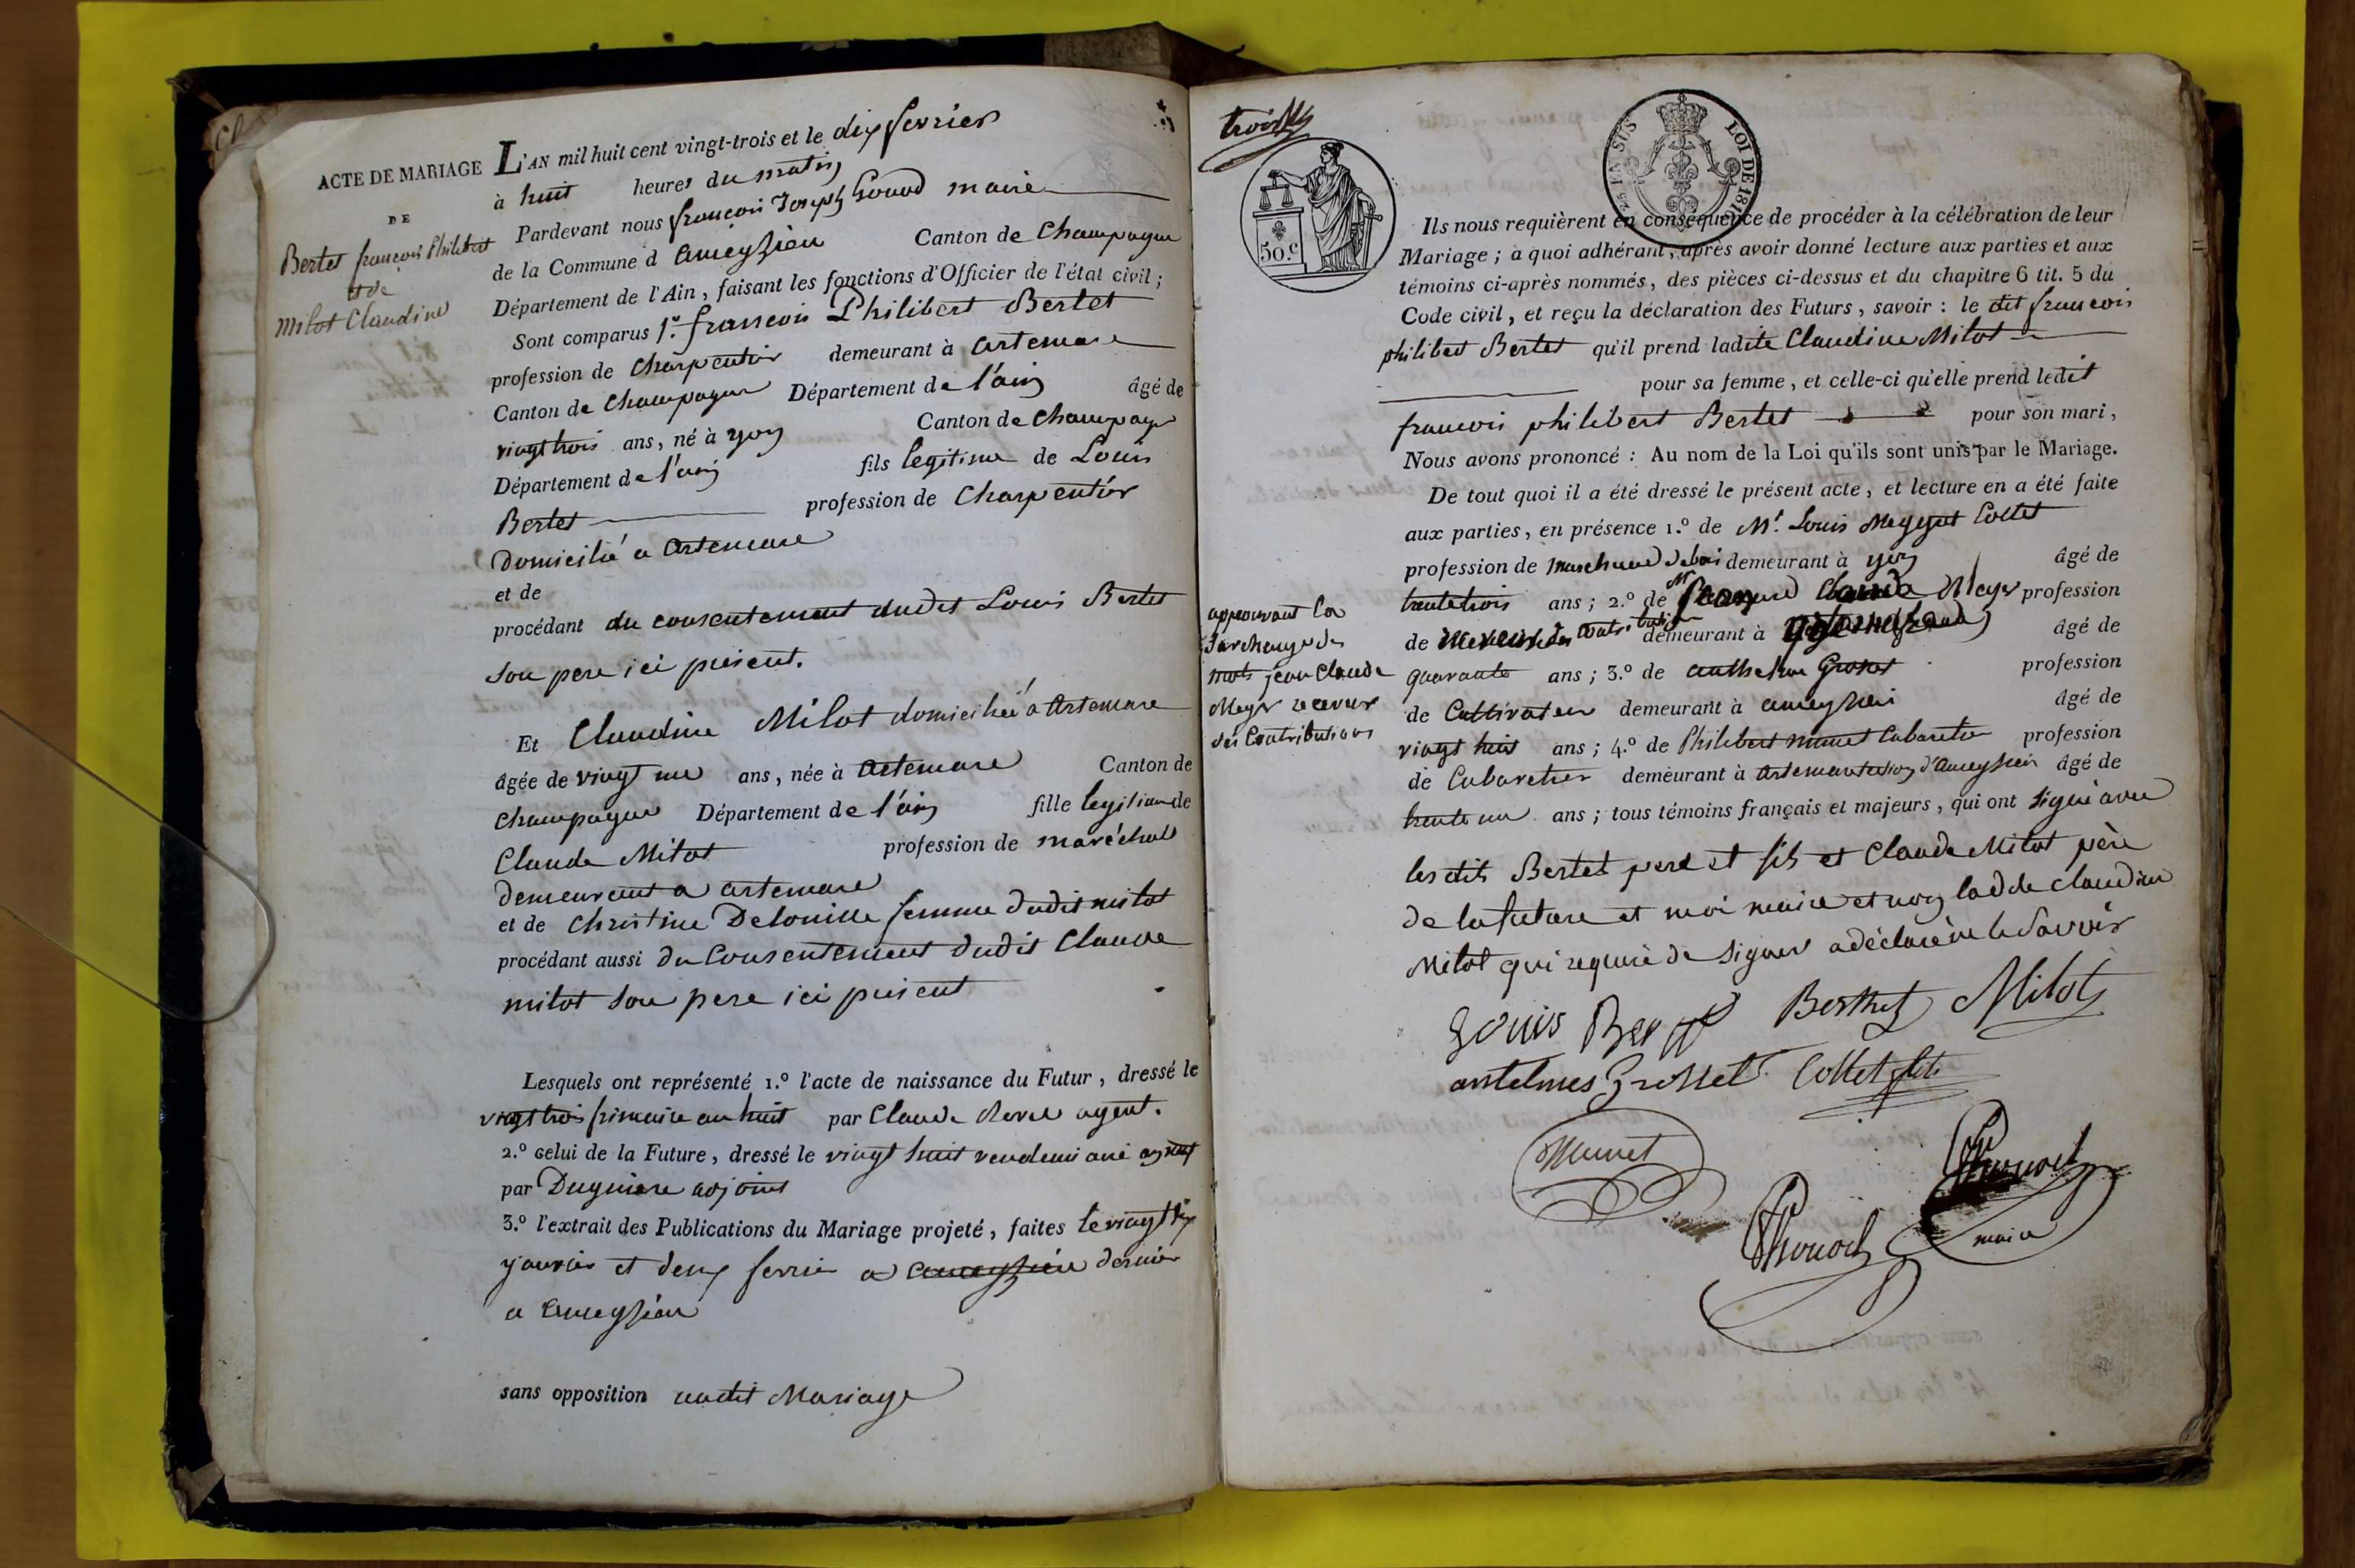 ACTE DE MARIAGE
DE
Bertet françois Philibert
et de
Milot Claudine
L'AN mil huit cent vingt-trois et le dix fevrier
à huit heures du matin
Pardevant nous françois Joseph maire
de la Commune d Ameyzieu Canton de Champagne
Département de l'Ain, faisant les fonctions d'Officier de l'état civil;
Sont comparus 1.º françois Philibert Bertet
profession de Charpentier demeurant à Artemare
Canton de Champagne Département de l'ain âgé de
vingt trois ans, né à yon Canton de Champagne
Département de l'ain fils legitime de Louis
Bertet profession de Charpentier
Domicilié a Artemare
et de
procédant du consentement dudit Louis Bertet
son pere ici présent.
Et Claudine Milot domiciliée a Artemare
âgée de vingt un ans, née à Artemare Canton de
Champagne Département de l'ain fille legitime de
Claude Milot profession de maréchal
demeurant a artemare
et de Christine Delouille femme dudit milot
procédant aussi du Consentement dudit Claude
milot son pere ici present
Lesquels ont représenté 1.º l'acte de naissance du Futur, dressé le
vingt trois frimaire an huit par Claude agent.
2.º celui de la Future, dressé le vingt huit
par Duguiere adjoint
3.º l'extrait des Publications du Mariage projeté, faites le vingt six
janvier et deux fevrier a ameyzieu dernier
a Ameyzieu
sans opposition audit Mariage
trois
50.c
EN SUS
LOI DE 181
Ils nous requièrent en conséquence de procéder à la célébration de leur
Mariage; à quoi adhérant, après avoir donné lecture aux parties et aux
témoins ci-après nommés, des pièces ci-dessus et du chapitre 6 tit. 5 du
Code civil, et reçu la déclaration des Futurs, savoir: le dit francois
philibert Bertet qu'il prend ladite Claudine Milot
pour sa femme, et celle-ci qu'elle prend ledit
francois philibert Bertet pour son mari,
Nous avons prononcé: Au nom de la Loi qu'ils sont unis par le Mariage.
De tout quoi il a été dressé le présent acte, et lecture en a été faite
aux parties, en présence 1.º de Mr. Louis Collet
profession de marchand de bois demeurant à yon âgé de
trente trois ans; 2.º de Mr Jean Claude Meyer profession
de receveur des Contributions demeurant à âgé de
quarante ans; 3.º de anthelme Grosset profession
de Cultivateur demeurant à ameyzieu âgé de
vingt huit ans; 4.º de Philibert munet Cabaretier profession
de Cabaretier demeurant à Artemare d'ameyzieu âgé de
trente un ans; tous témoins français et majeurs, qui ont signé avec
les dits Bertet pere et fils et Claude Milot père
de la future et moi maire et non lad.de Claudine
Milot qui requise de signer a déclaré ne le Savoir
approuvant la
Surcharge de
mots jean Claude
Meyer receveur
des Contributions
Louis Berthet Milot
antelmes Grosset Collet
Munet
maire